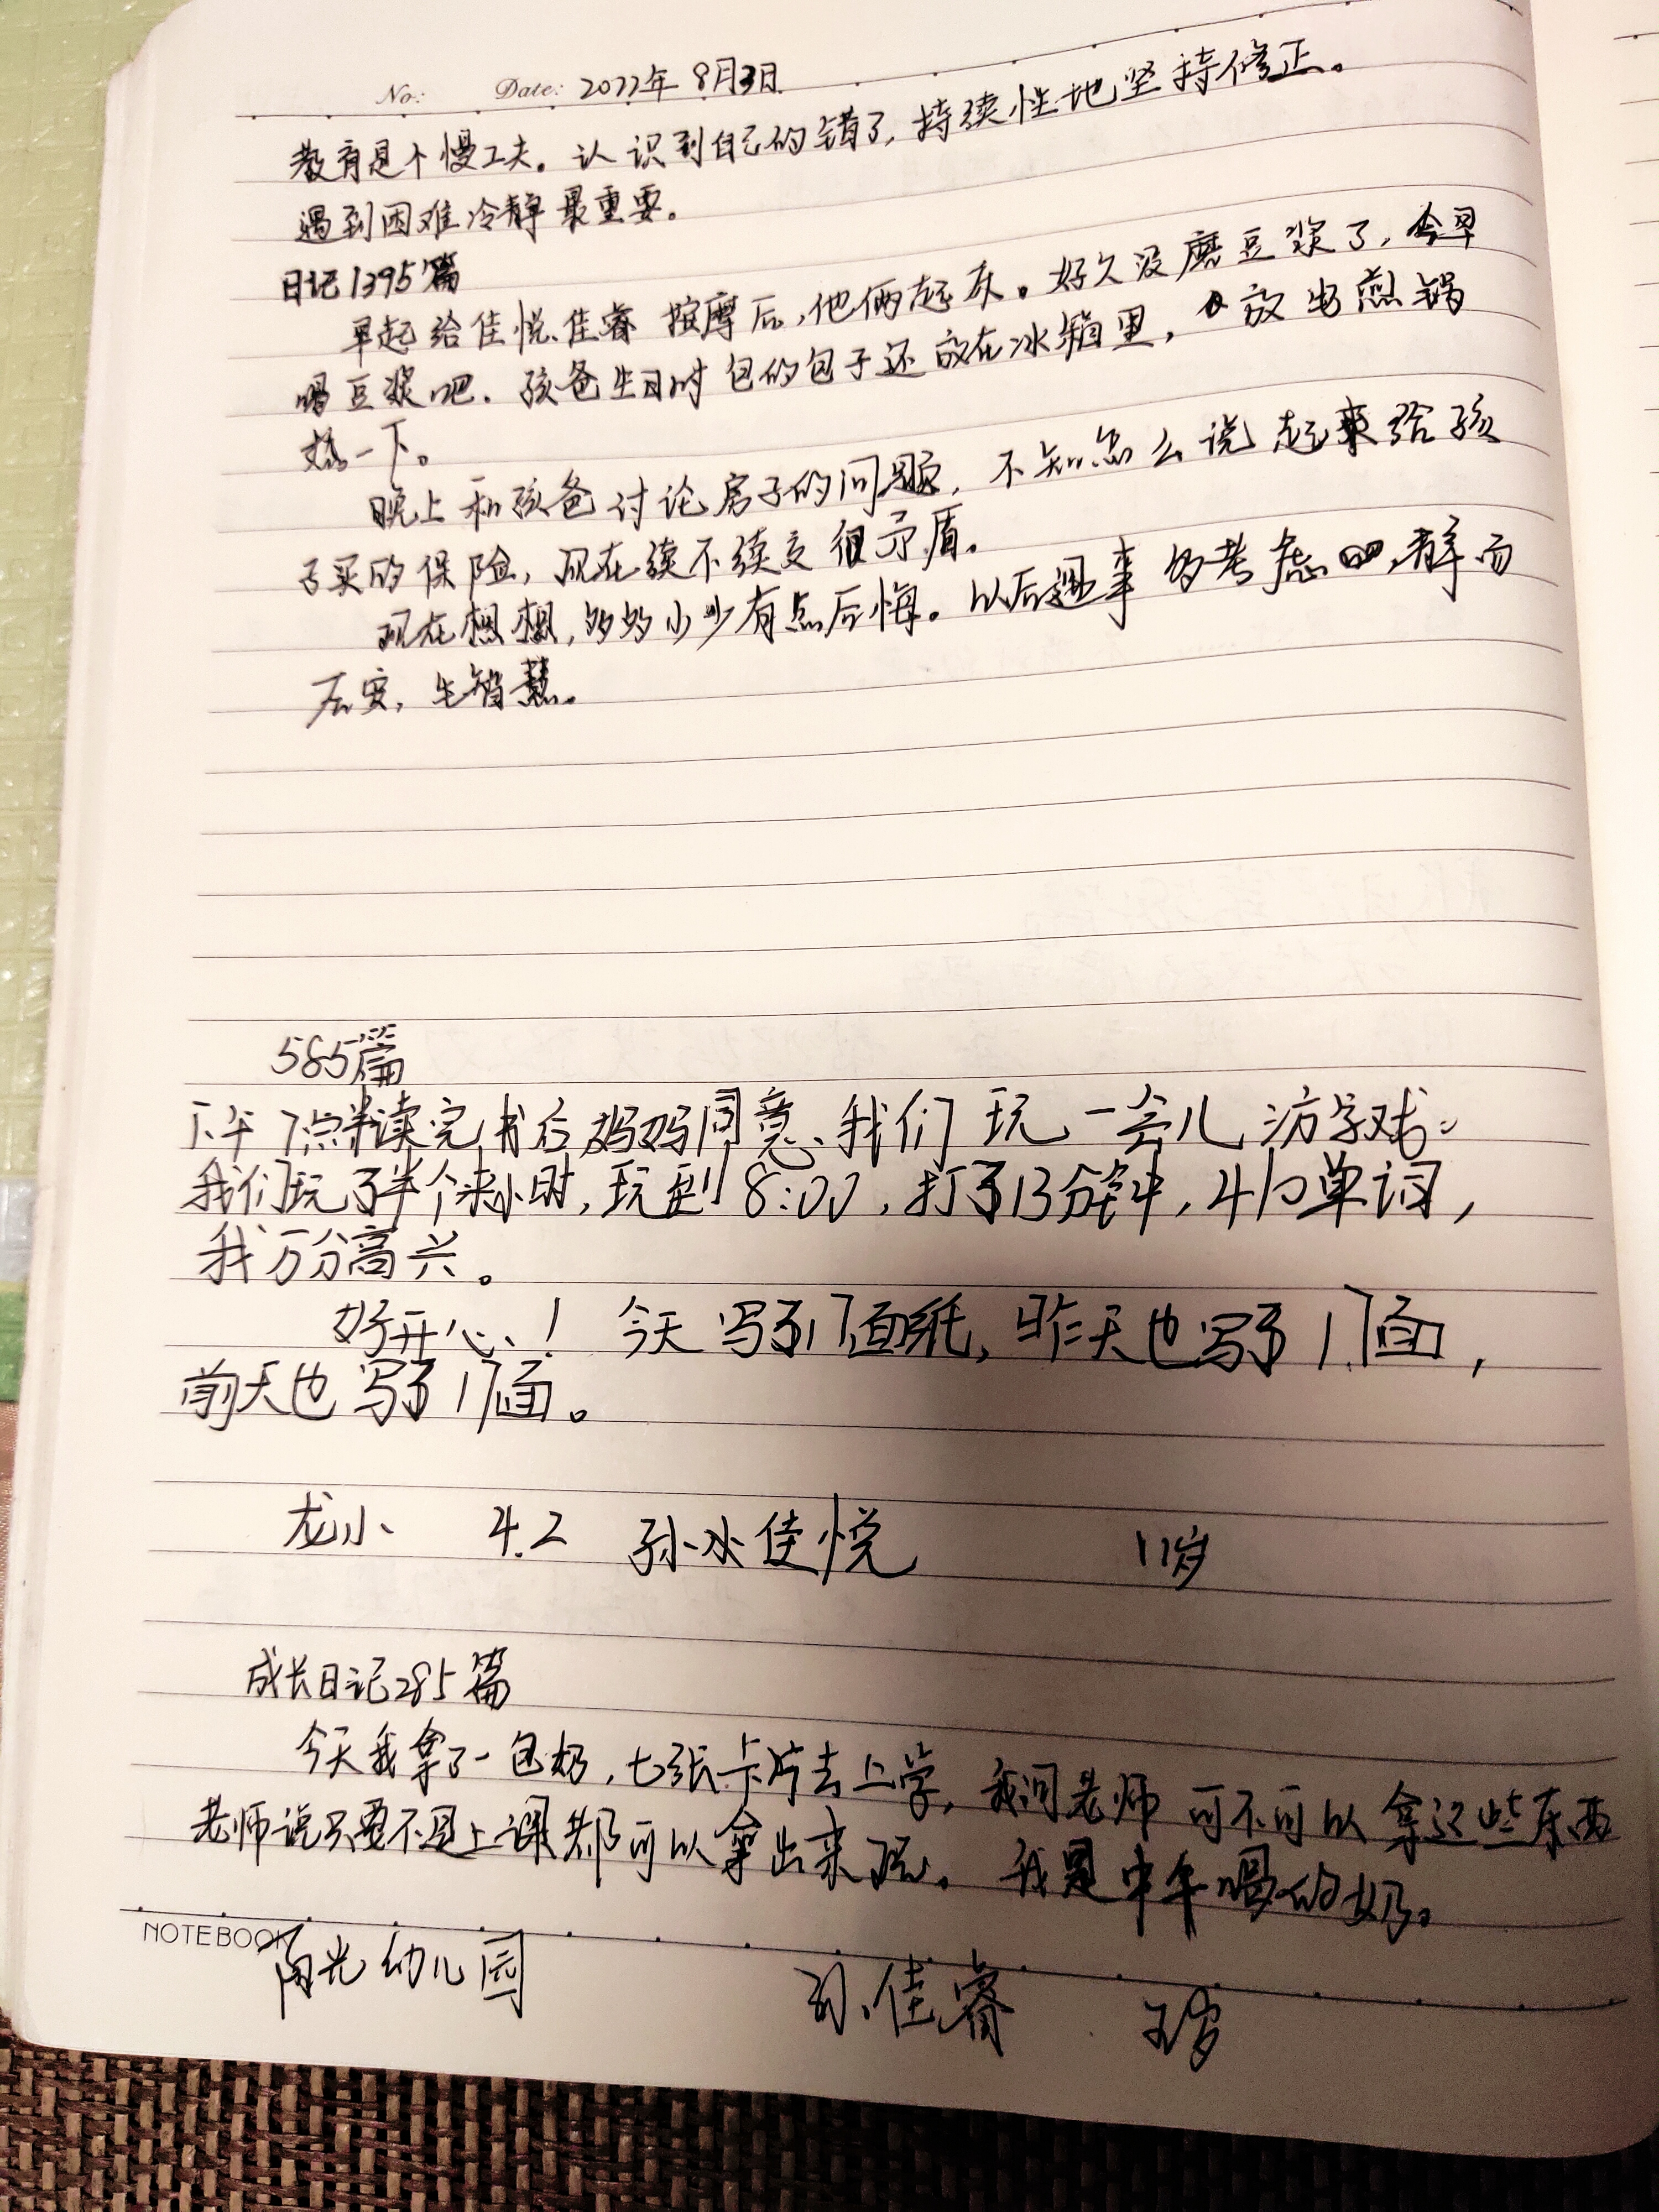 No: Date: 2022年8月3日
教育是个慢工夫。认识到自己的错了,持续性地坚持修正。
遇到困难冷静最重要。
日记1395篇
早起给佳悦、佳睿按摩后,他俩起床。好久没磨豆浆了,今早
喝豆浆吧。孩爸生日时包的包子还放在冰箱里,放电煎锅
热一下。
晚上和孩爸讨论房子的问题,不知怎么说起来给孩
子买的保险,现在续不续交很矛盾。
现在想想,多多少少有点后悔。以后遇事多考虑吧,静而
后安,生智慧。
585篇
下午7点半读完书后妈妈同意、我们玩一会儿游戏。
我们玩了半个来小时,玩到8:00,打了13分钟,410单词,
我万分高兴。
好开心!今天写了17面纸,昨天也写了17面,
前天也写了17面。
龙小 4.2 孙冰佳悦 11岁
成长日记285篇
今天我拿了一包奶,七张卡片去上学,我问老师可不可以拿这些东西
老师说只要不是上课都可以拿出来玩。我是中午喝的奶。
NOTEBOOK
阳光幼儿园 孙佳睿